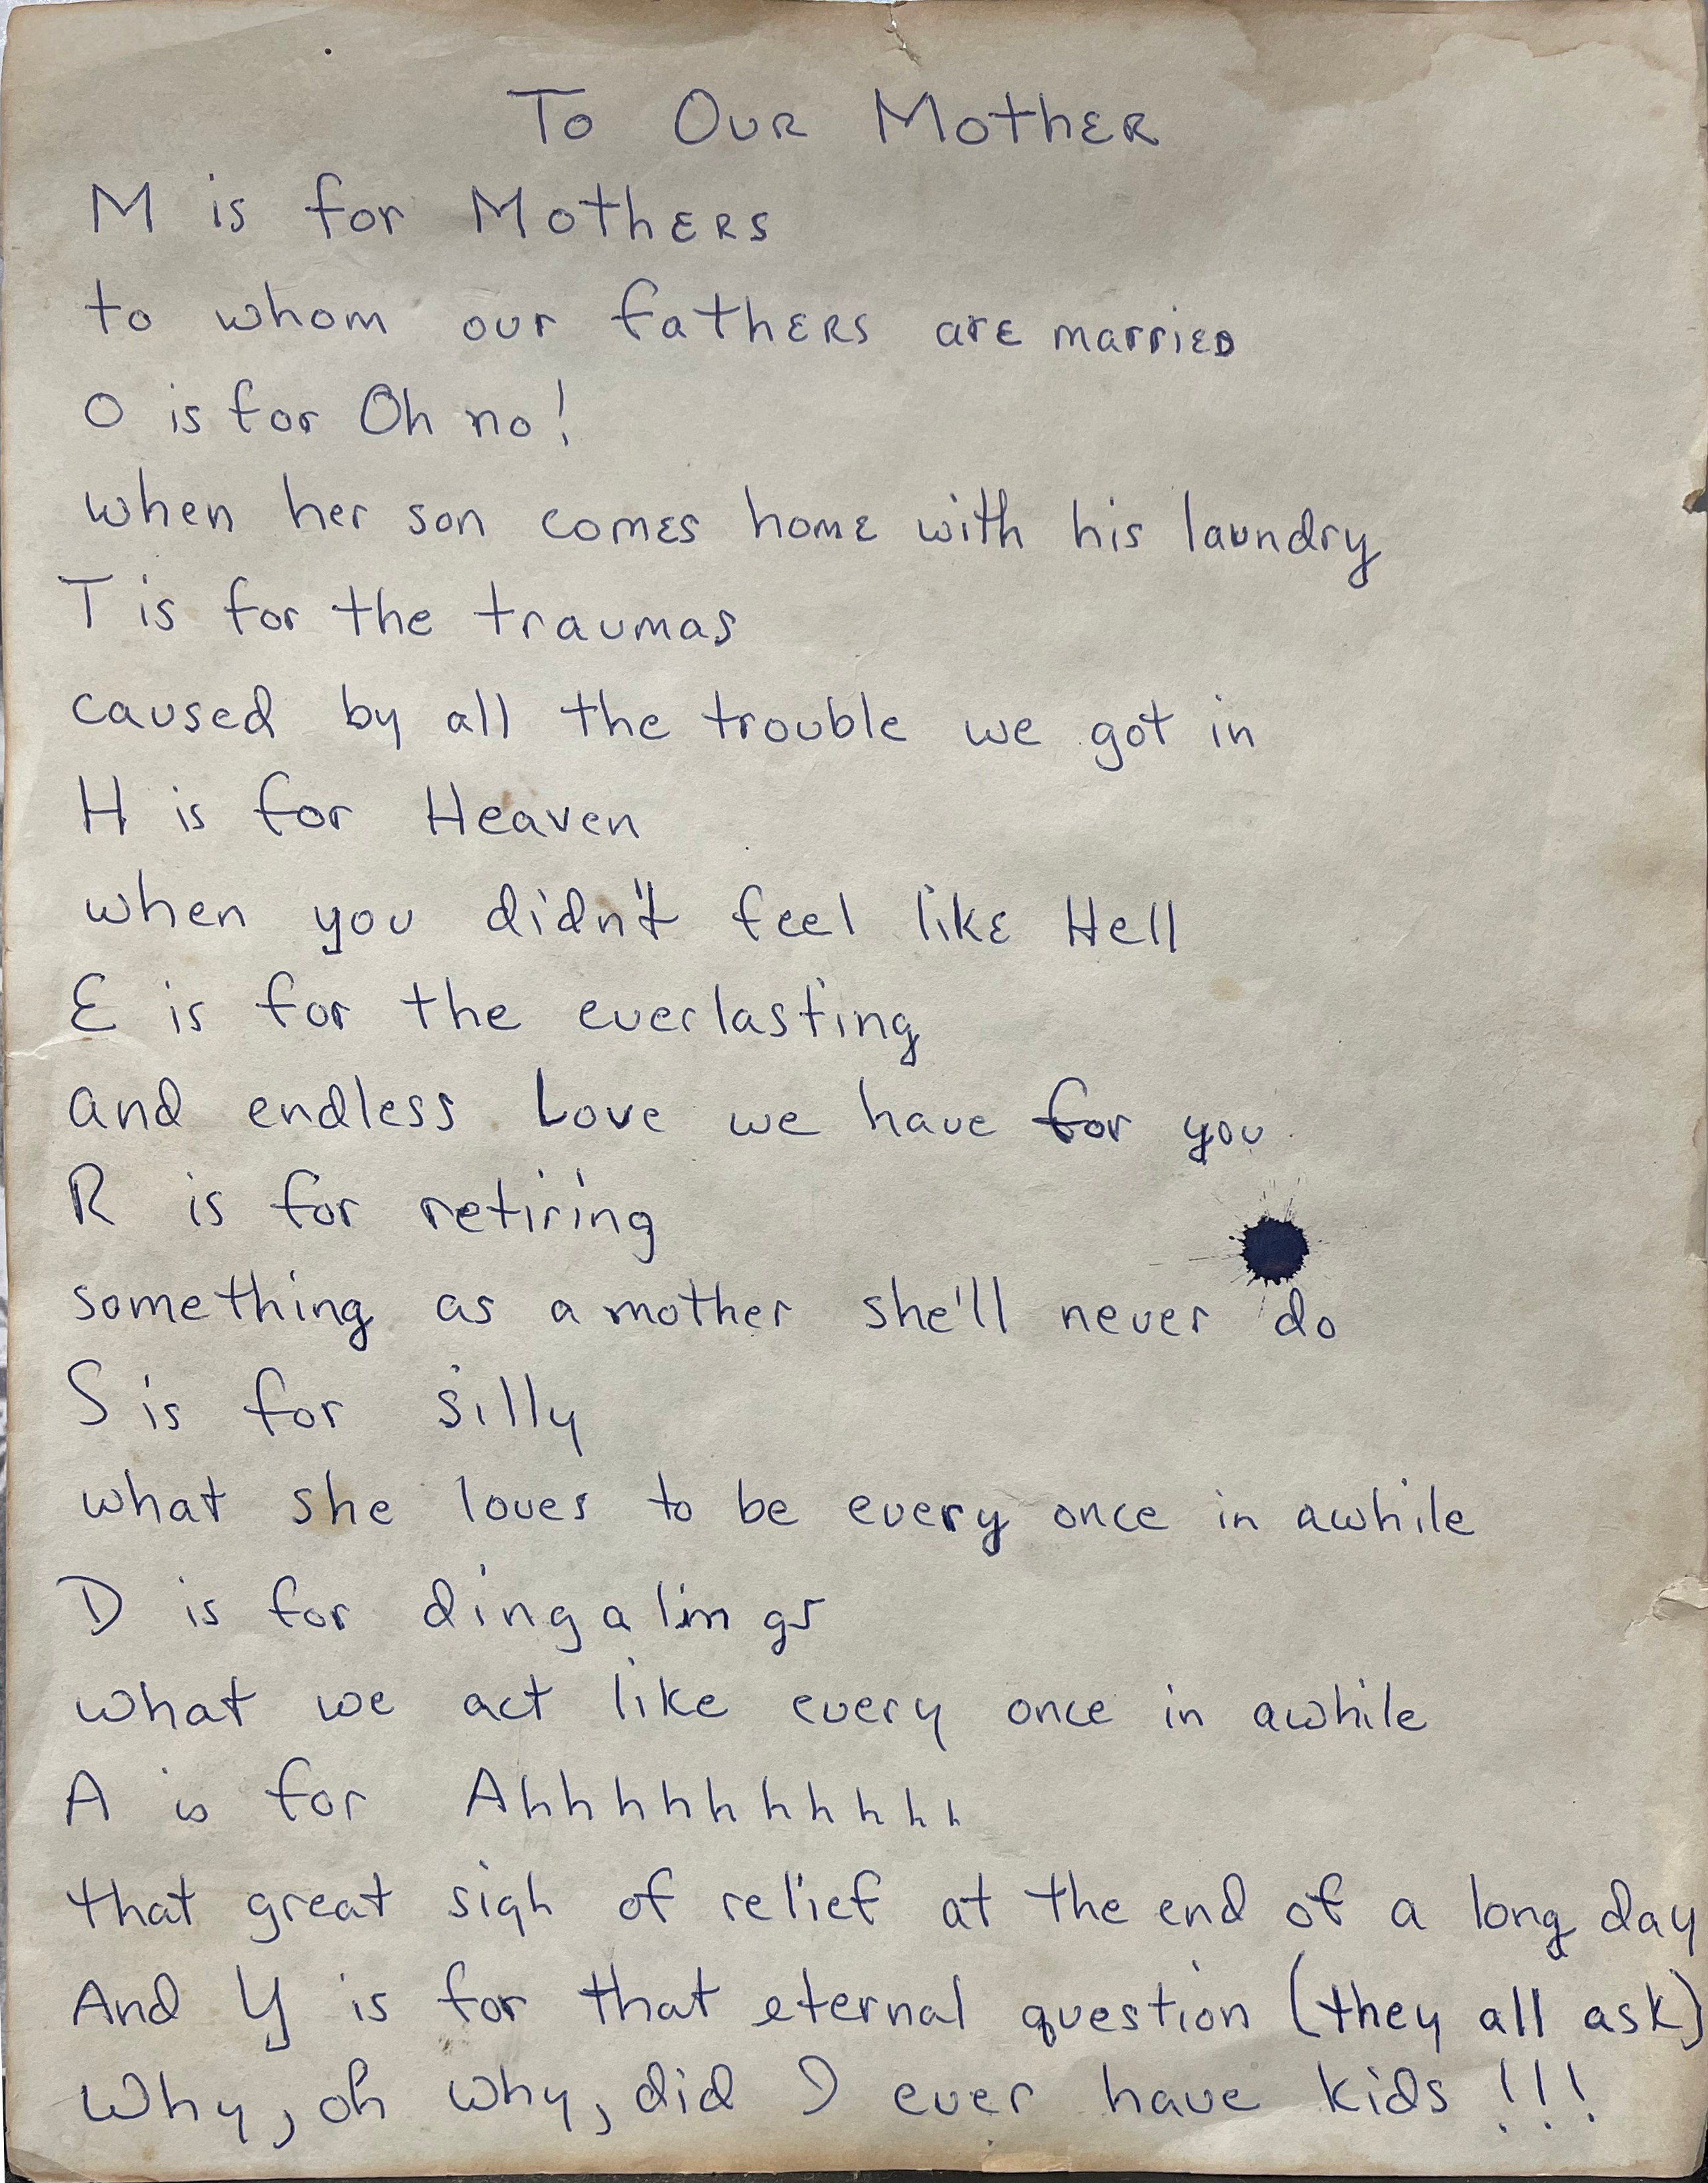 To Our Mother
M is for Mothers
to whom our fathers are married
O is for Oh no!
when her son comes home with his laundry
T is for the traumas
caused by all the trouble we got in
H is for Heaven
when you didn't feel like Hell
E is for the everlasting
and endless Love we have for you
R is for retiring
something as a mother she'll never do
S is for silly
what she loves to be every once in awhile
D is for dingalings
what we act like every once in awhile
A is for Ahhhhhhhhhh
that great sigh of relief at the end of a long day
And Y is for that eternal question (they all ask)
Why, oh why, did I ever have kids!!!